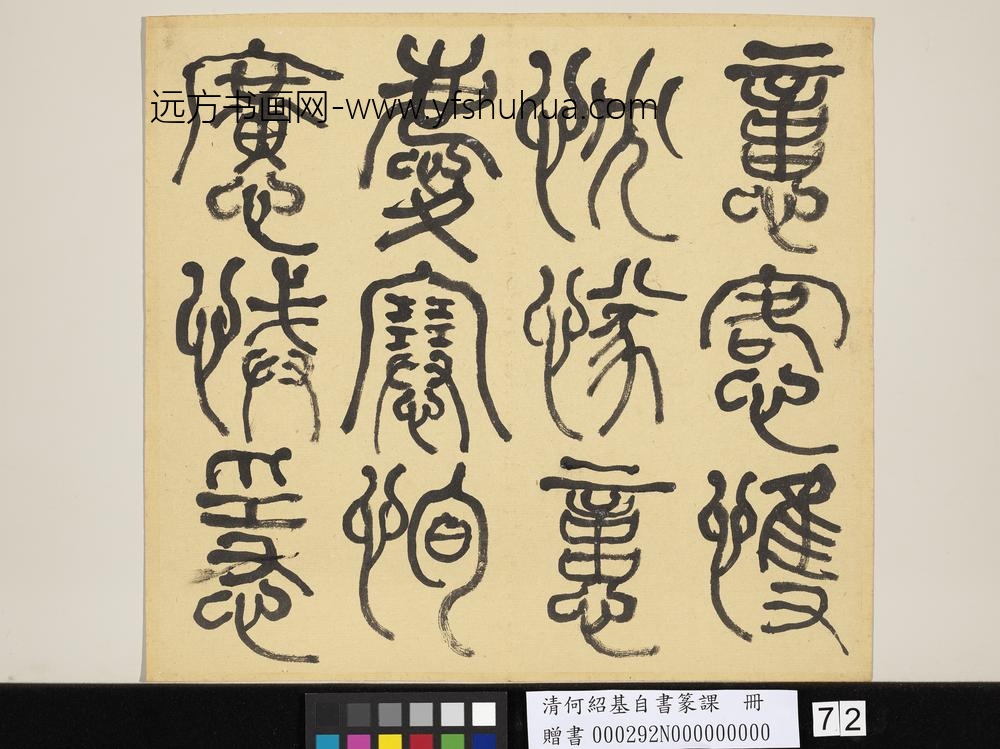 愙愯
忱㥞
慶𡫳恂
懬悈㥯
远方书画网-www.yfshuhua.com
清何紹基自書篆課　冊
贈書 000292N000000000
72